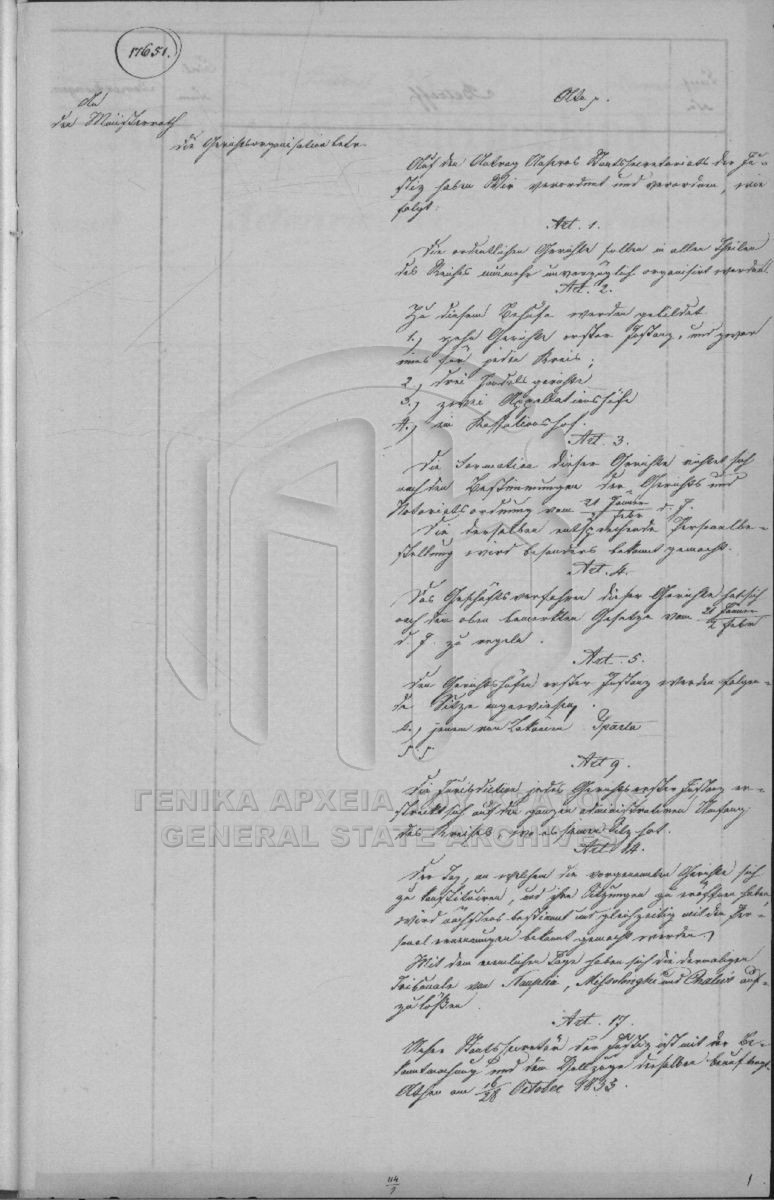 17651.
An
den Ministerrath
die Gerichtsorganisation betr.
Otto p.
Auf den Antrag Unseres Staatssecretariats der Ju-
stiz haben Wir verordnet und verordnen, wie
folgt:
Art. 1.
Die ordentlichen Gerichte sollen in allen Theilen
des Reiches nunmehr unverzüglich organisirt werden.
Art. 2.
Zu diesem Behufe werden gebildet
1., zehn Gerichte erster Instanz, und zwar
eines für jeden Kreis;
2., drei Handelsgerichte
3., zwei Appellationshöfe
4., ein Kassationshof.
Art. 3.
Die Formation dieser Gerichte richtet sich
nach den Bestimmungen der Gerichts und
Notariatsordnung vom 21 Jänner / 2 Febr d. J.
Die derselben entsprechende Personalbe-
stellung wird besonders bekannt gemacht.
Art. 4.
Das Geschäftsverfahren dieser Gerichte hat sich
nach den oben bemerkten Gesetze vom 21 Jänner / 2 Febr
d. J. zu regeln.
Art. 5.
Den Gerichtshöfen erster Instanz werden folgen-
de Sitze angewiesen,
jenem von Lakonien Sparta
p. p.
Art 9.
Die Jurisdiction jedes Gerichts erster Instanz er-
streckt sich auf den ganzen administrativen Umfang
des Kreises, wo es seinen Sitz hat.
Art. 14.
Der Tag, an welchem die vorgenannten Gerichte sich
zu konstituiren, und ihre Sitzungen zu eröffnen haben,
wird nächstens bestimmt und gleichzeitig mit den Per-
sonal ernennungen bekannt gemacht werden.
Mit dem nemlichen Tage haben sich die dermaligen
Tribunale von Nauplia, Missolunghi und Chalcis auf-
zulößen.
Art. 17.
Unser Staatssecretär der Justiz ist mit der Be-
kanntmachung und dem Vollzuge derselben beauftragt.
Athen am 16/28 October 1835.
ΓΕΝΙΚΑ ΑΡΧΕΙΑ
GENERAL STATE ARCHIVES
114/1
1